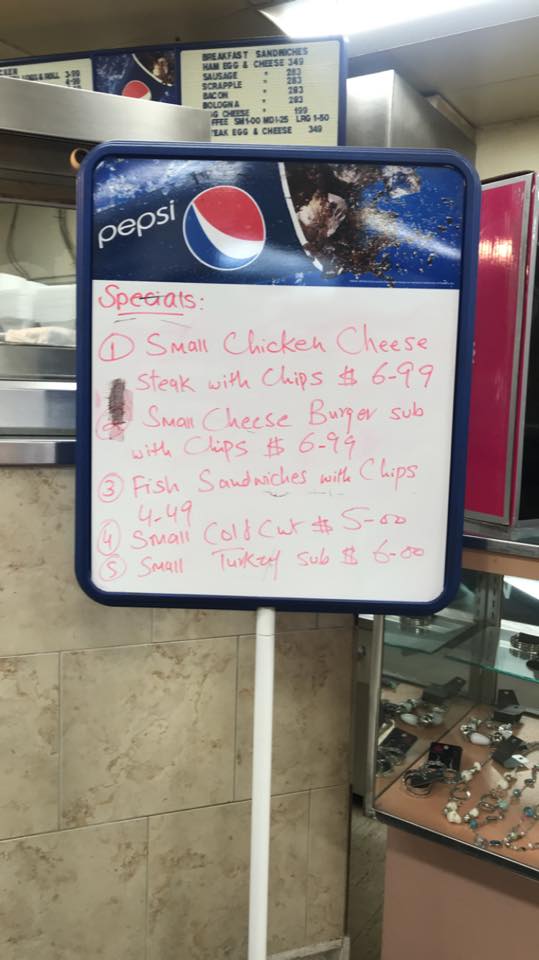 BREAKFAST SANDWICHES
HAM EGG & CHEESE 349
SAUSAGE " 283
SCRAPPLE " 283
BACON " 283
BOLOGNA " 283
GG CHEESE " 199
FFEE SM1-00 MD1-25 LRG 1-50
TEAK EGG & CHEESE 349
pepsi
Specials:
① Small Chicken Cheese
Steak with Chips $ 6-99
Small Cheese Burger sub
with Chips $ 6-99
③ Fish Sandwiches with Chips
4-49
④ Small Cold Cut $ 5-00
⑤ Small Turkey sub $ 6-00